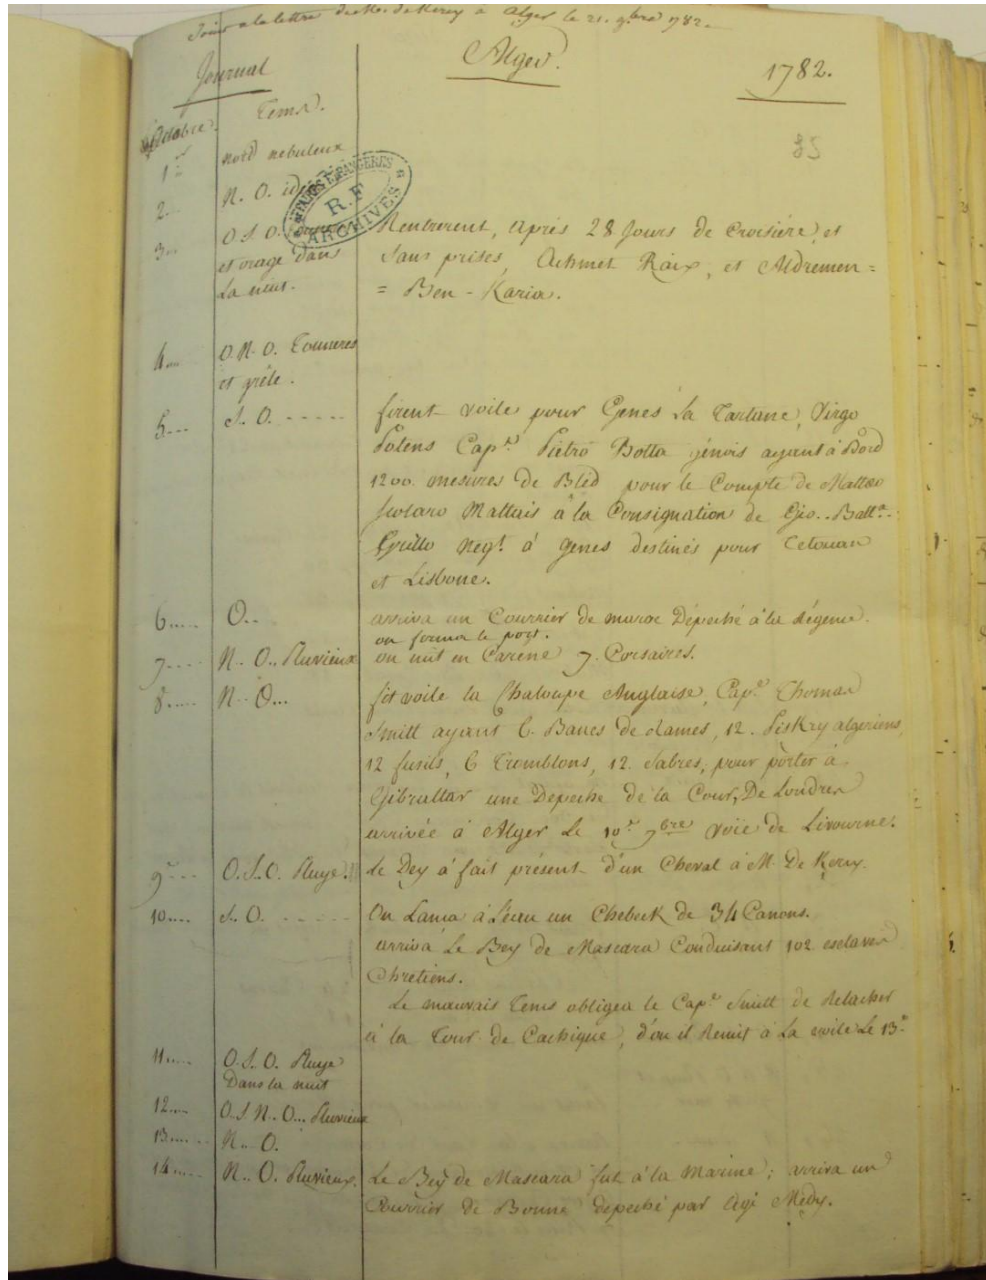 Joint a la lettre de M. de Kercy a Alger le 21. 9bre 1782.
Journal
Alger.
1782.
85
Octobre.
Tems.
AFFAIRES ETRANGERES
R.F
ARCHIVES
1er
Nord nebuleux
2...
N. O. idem
3...
O. S. O.
et orage dans
La nuit.
Rentrerent, après 28 Jours de Croisiére, et
Sans prises, Achmet Raix, et Aldremen =
= Ben - Karia.
4...
O. N. O. Tonneres
et grêle.
5...
S. O. - - - - -
firent voile pour Genes La Tartane, Virgo
Potens Cape. Pietro Botta génois ayant à Bord
1200. mesures de Bled pour le Compte de Matteo
Scolaro Mattais à la Consignation de Gio.. Batta..
Grillo Negt. à genes destinés pour Tetouan
et Lisbone.
6.....
O..
arriva un Courrier de maroc Dépeché à la Régence.
on ferma le port.
7....
N.. O.. Pluvieux
on mit en Carene 7. Corsaires.
8.....
N.. O...
fit voile la Chaloupe Anglaise, Cape. Thomas
Smitt ayant 6. Bancs de Rames, 12. Piskry algeriens,
12 fusils, 6 Tromblons, 12. Sabres, pour porter à
Gibraltar une Depeche de la Cour, De Londres
arrivée à Alger Le 10e 7bre voïe de Livourne.
9e...
O. S.. O. Pluye.
Le Dey à fait présent d'un Cheval à M. De Kercy.
10....
S. O. - - - - -
On Lança à L'eau un Chebeck de 34 Canons.
arriva Le Bey de Mascara Conduisant 102 esclaves
Chretiens.
Le mauvais Tems obligea le Cape. Smitt de Relacher
à la Tour de Cachique, d'ou il Remit à La voile Le 13e
11.....
O. S.. O. Pluye
Dans la nuit
12....
O. S. N.. O... Pluvieux
13......
N.. O.
14.....
N.. O. Pluvieux.
Le Bey de Mascara fut à la Marine; arriva un
Courrier de Bonne depeché par Cegi Medy.